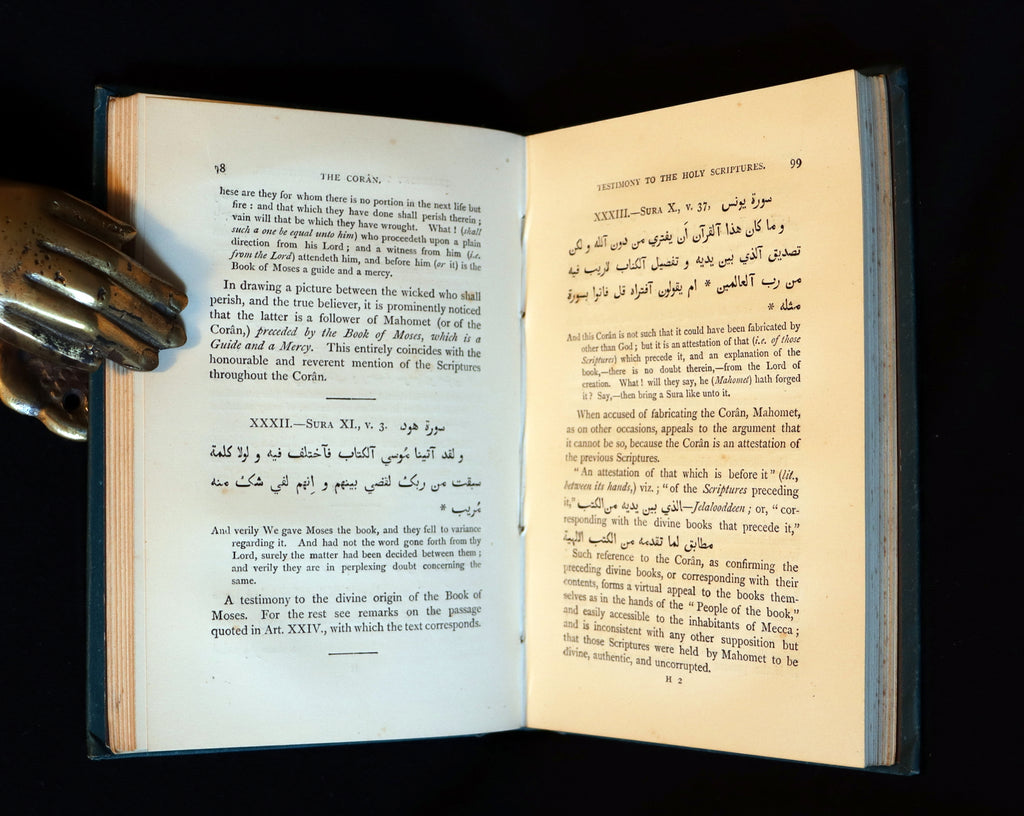 98
THE CORÂN.
hese are they for whom there is no portion in the next life but
fire : and that which they have done shall perish therein ;
vain will that be which they have wrought. What ! (shall
such a one be equal unto him) who proceedeth upon a plain
direction from his Lord ; and a witness from him (i.e.
from the Lord) attendeth him, and before him (or it) is the
Book of Moses a guide and a mercy.
In drawing a picture between the wicked who shall
perish, and the true believer, it is prominently noticed
that the latter is a follower of Mahomet (or of the
Corân,) preceded by the Book of Moses, which is a
Guide and a Mercy. This entirely coincides with the
honourable and reverent mention of the Scriptures
throughout the Corân.
XXXII.—SURA XI., v. 3. سورة هود
و لقد آتينا مُوسي آلكتاب فآختلف فيه و لولا كلمة
سبقت من ربكَ لقضي بينهم و اِنهم لفي شكَ منه
مُريب *
And verily We gave Moses the book, and they fell to variance
regarding it. And had not the word gone forth from thy
Lord, surely the matter had been decided between them ;
and verily they are in perplexing doubt concerning the
same.
A testimony to the divine origin of the Book of
Moses. For the rest see remarks on the passage
quoted in Art. XXIV., with which the text corresponds.
TESTIMONY TO THE HOLY SCRIPTURES.
99
XXXIII.—SURA X., v. 37, سورة يونس
و ما كان هذا آلقرآن أن يفتري من دون آلله و لكن
تصديق آلذي بين يديه و تفصيل آلكتاب لاريب فيه
من رب آلعالمين * ام يقولون آفتراه قل فاتوا بسورة
مثله *
And this Corân is not such that it could have been fabricated by
other than God ; but it is an attestation of that (i.e. of those
Scriptures) which precede it, and an explanation of the
book,—there is no doubt therein,—from the Lord of
creation. What ! will they say, he (Mahomet) hath forged
it ? Say,—then bring a Sura like unto it.
When accused of fabricating the Corân, Mahomet,
as on other occasions, appeals to the argument that
it cannot be so, because the Corân is an attestation of
the previous Scriptures.
“ An attestation of that which is before it ” (lit.,
between its hands,) viz. ; “ of the Scriptures preceding
it,” الذي بين يديه من الكتب—Jelalooddeen ; or, “ cor-
responding with the divine books that precede it,”
مطابق لما تقدمه من الكتب الالهية
Such reference to the Corân, as confirming the
preceding divine books, or corresponding with their
contents, forms a virtual appeal to the books them-
selves as in the hands of the “ People of the book,”
and easily accessible to the inhabitants of Mecca ;
and is inconsistent with any other supposition but
that those Scriptures were held by Mahomet to be
divine, authentic, and uncorrupted.
H 2